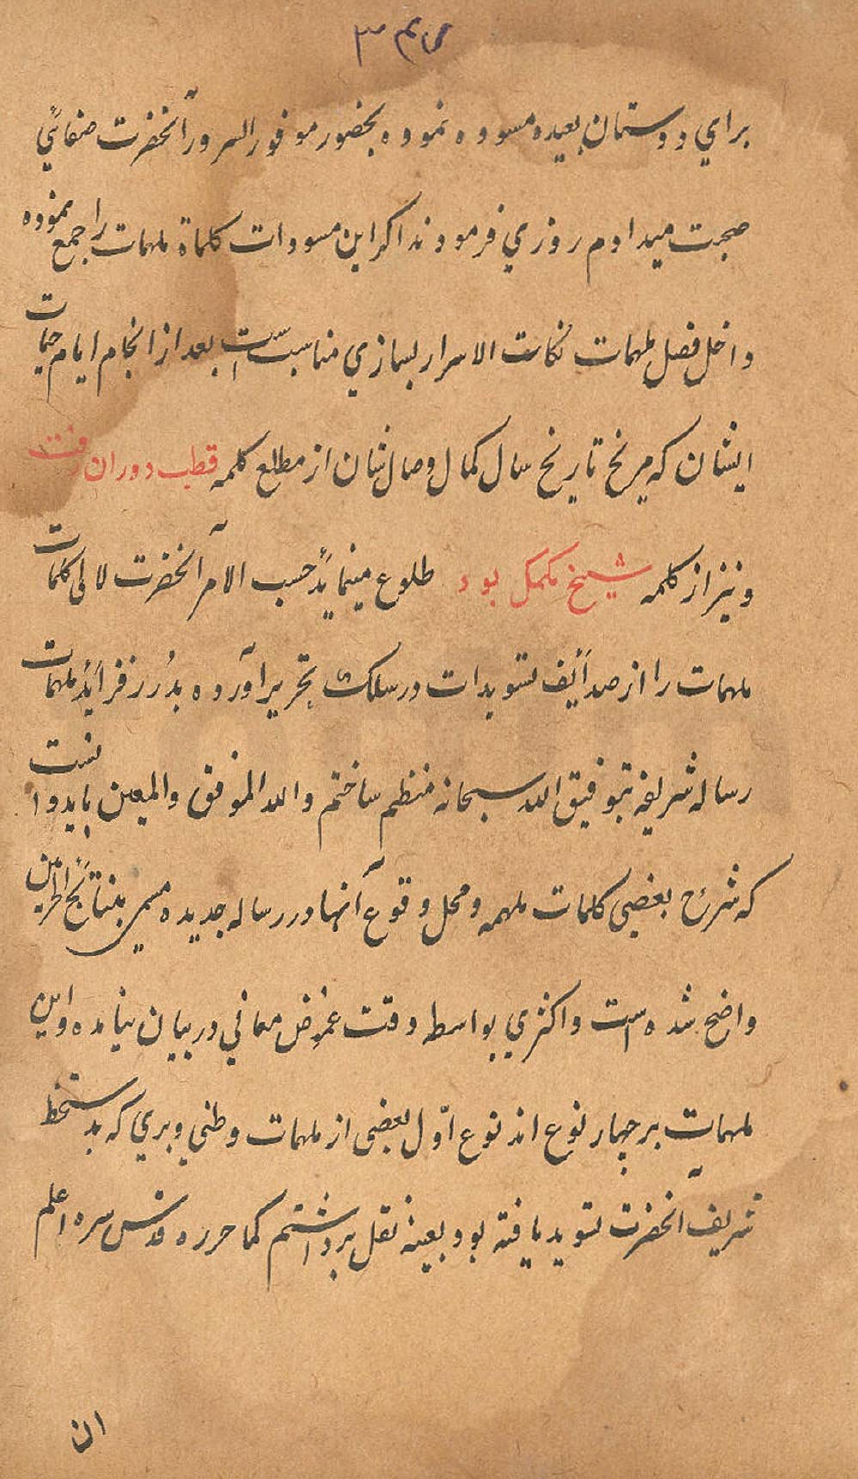 برای دوستان بعیده مسوده نموده بحضور موفور السرور آنحضرت
صحبت میدادم روزی فرمودند اگر این مسودات کلماة ملهمات را جمع نموده
داخل فصل ملهمات نکات الاسرار بسازی مناسبست بعد از انجام ایام حیات
ایشان که تاریخ سال کمال وصال شان از مطلع کلمه قطب دوران رفت
و نیز از کلمه شیخ مکمل بود طلوع مینماید حسب الامر آنحضرت لالی کلمات
ملهمات را از صدایف تسویدات در سلک تحریر آورده بدُرر فرائد ملهمات
رساله شریفه بتوفیق الله سبحانه منظم ساختم والله الموفق والمعین باید دانست
که شرح بعضی کلمات ملهمه و محل وقوع آنها در رساله جدیده مسمی بنتائج الحرمین
واضح شده است و اکثری بواسطه دقت غموض معانی در بیان نیامده و این
ملهمات بر چهار نوع اند نوع اوّل بعضی از ملهمات وطنی و بری که بدستخط
شریف آنحضرت تسوید یافته بود بعینه نقل برداشتم کما حرره قدس سره اعلم
ان